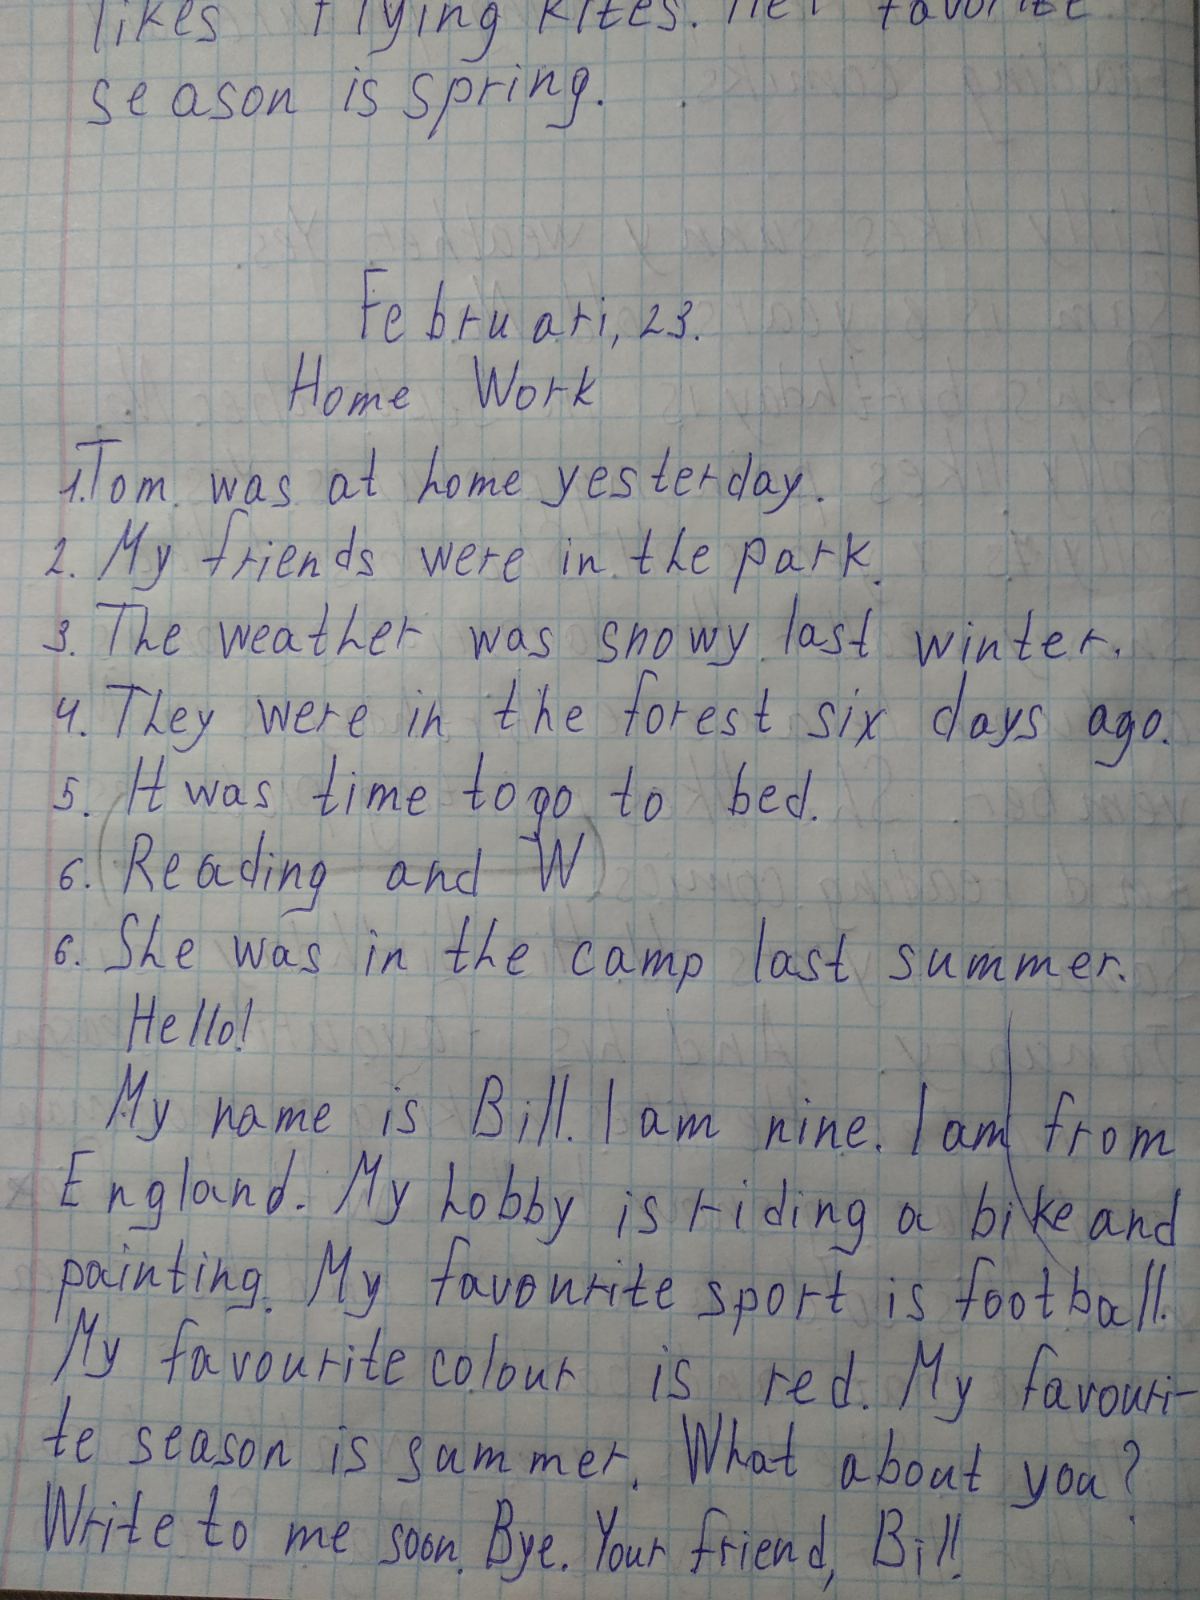 likes flying kites. Her favorite
season is spring.
Februari, 23.
Home Work
1. Tom was at home yesterday.
2. My friends were in the park.
3. The weather was snowy last winter.
4. They were in the forest six days ago.
5. It was time to go to bed.
6. Reading and W
6. She was in the camp last summer.
Hello!
My name is Bill. I am nine. I am from
England. My hobby is riding a bike and
painting. My favourite sport is football.
My favourite colour is red. My favouri-
te season is summer. What about you?
Write to me soon. Bye. Your friend, Bill.